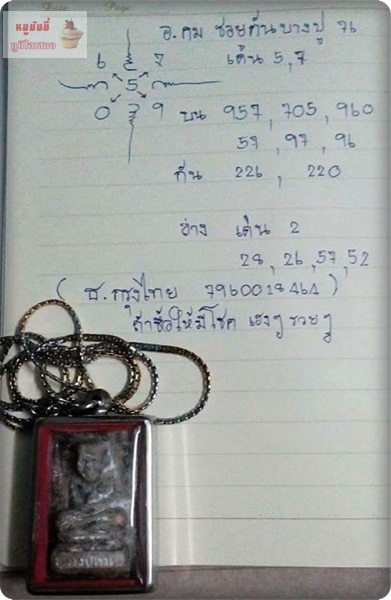 หมูบันนี่
ภูมิใจเสนอ
Date Page
อ.คม ซอยตันบางปู 76
6 7 เด่น 5,7
5
0 9 บน 957, 705, 960
57, 97, 96
กัน 226, 220
ล่าง เด่น 2
28, 26, 57, 52
(ธ.กรุงไทย 7960018464)
ถ้าซื้อให้มีโชค เฮงๆ รวยๆ